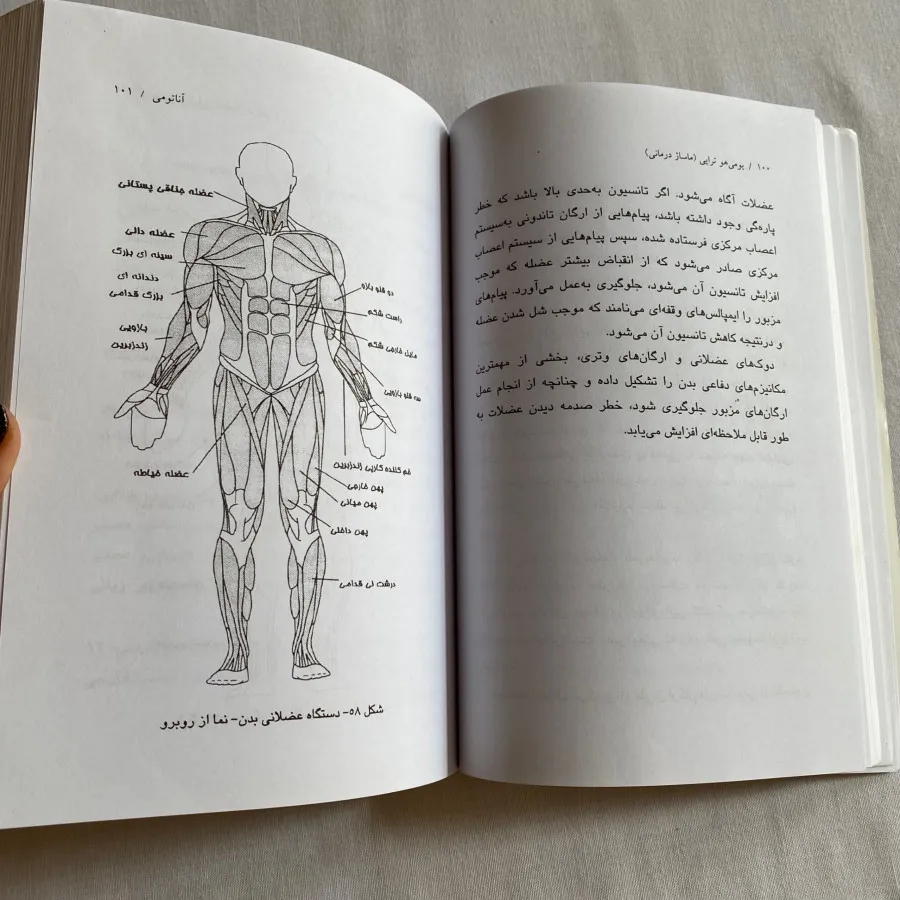 ۱۰۰ / یومی‌هو تراپی (ماساژ درمانی)
عضلات آگاه می‌شود. اگر تانسیون به‌حدی بالا باشد که خطر
پاره‌گی وجود داشته باشد، پیام‌هایی از ارگان تاندونی به‌سیستم
اعصاب مرکزی فرستاده شده، سپس پیام‌هایی از سیستم اعصاب
مرکزی صادر می‌شود که از انقباض بیشتر عضله که موجب
افزایش تانسیون آن می‌شود، جلوگیری به‌عمل می‌آورد. پیام‌های
مزبور را ایمپالس‌های وقفه‌ای می‌نامند که موجب شل شدن عضله
و درنتیجه کاهش تانسیون آن می‌شود.
دوک‌های عضلانی و ارگان‌های وتری، بخشی از مهمترین
مکانیزم‌های دفاعی بدن را تشکیل داده و چنانچه از انجام عمل
ارگان‌های مزبور جلوگیری شود، خطر صدمه دیدن عضلات به
طور قابل ملاحظه‌ای افزایش می‌یابد.
آناتومی / ۱۰۱
عضله جناقی پستانی
عضله دالی
سینه ای بزرگ
دندانه ای
بزرگ قدامی
بازویی
زندزبرین
عضله خیاطه
دو قلو بازو
راست شکم
مایل خارجی شکم
سه قلو بازویی
خم کننده کارپی زندزبرین
پهن خارجی
پهن میانی
پهن داخلی
درشت نی قدامی
شکل ۵۸- دستگاه عضلانی بدن- نما از روبرو